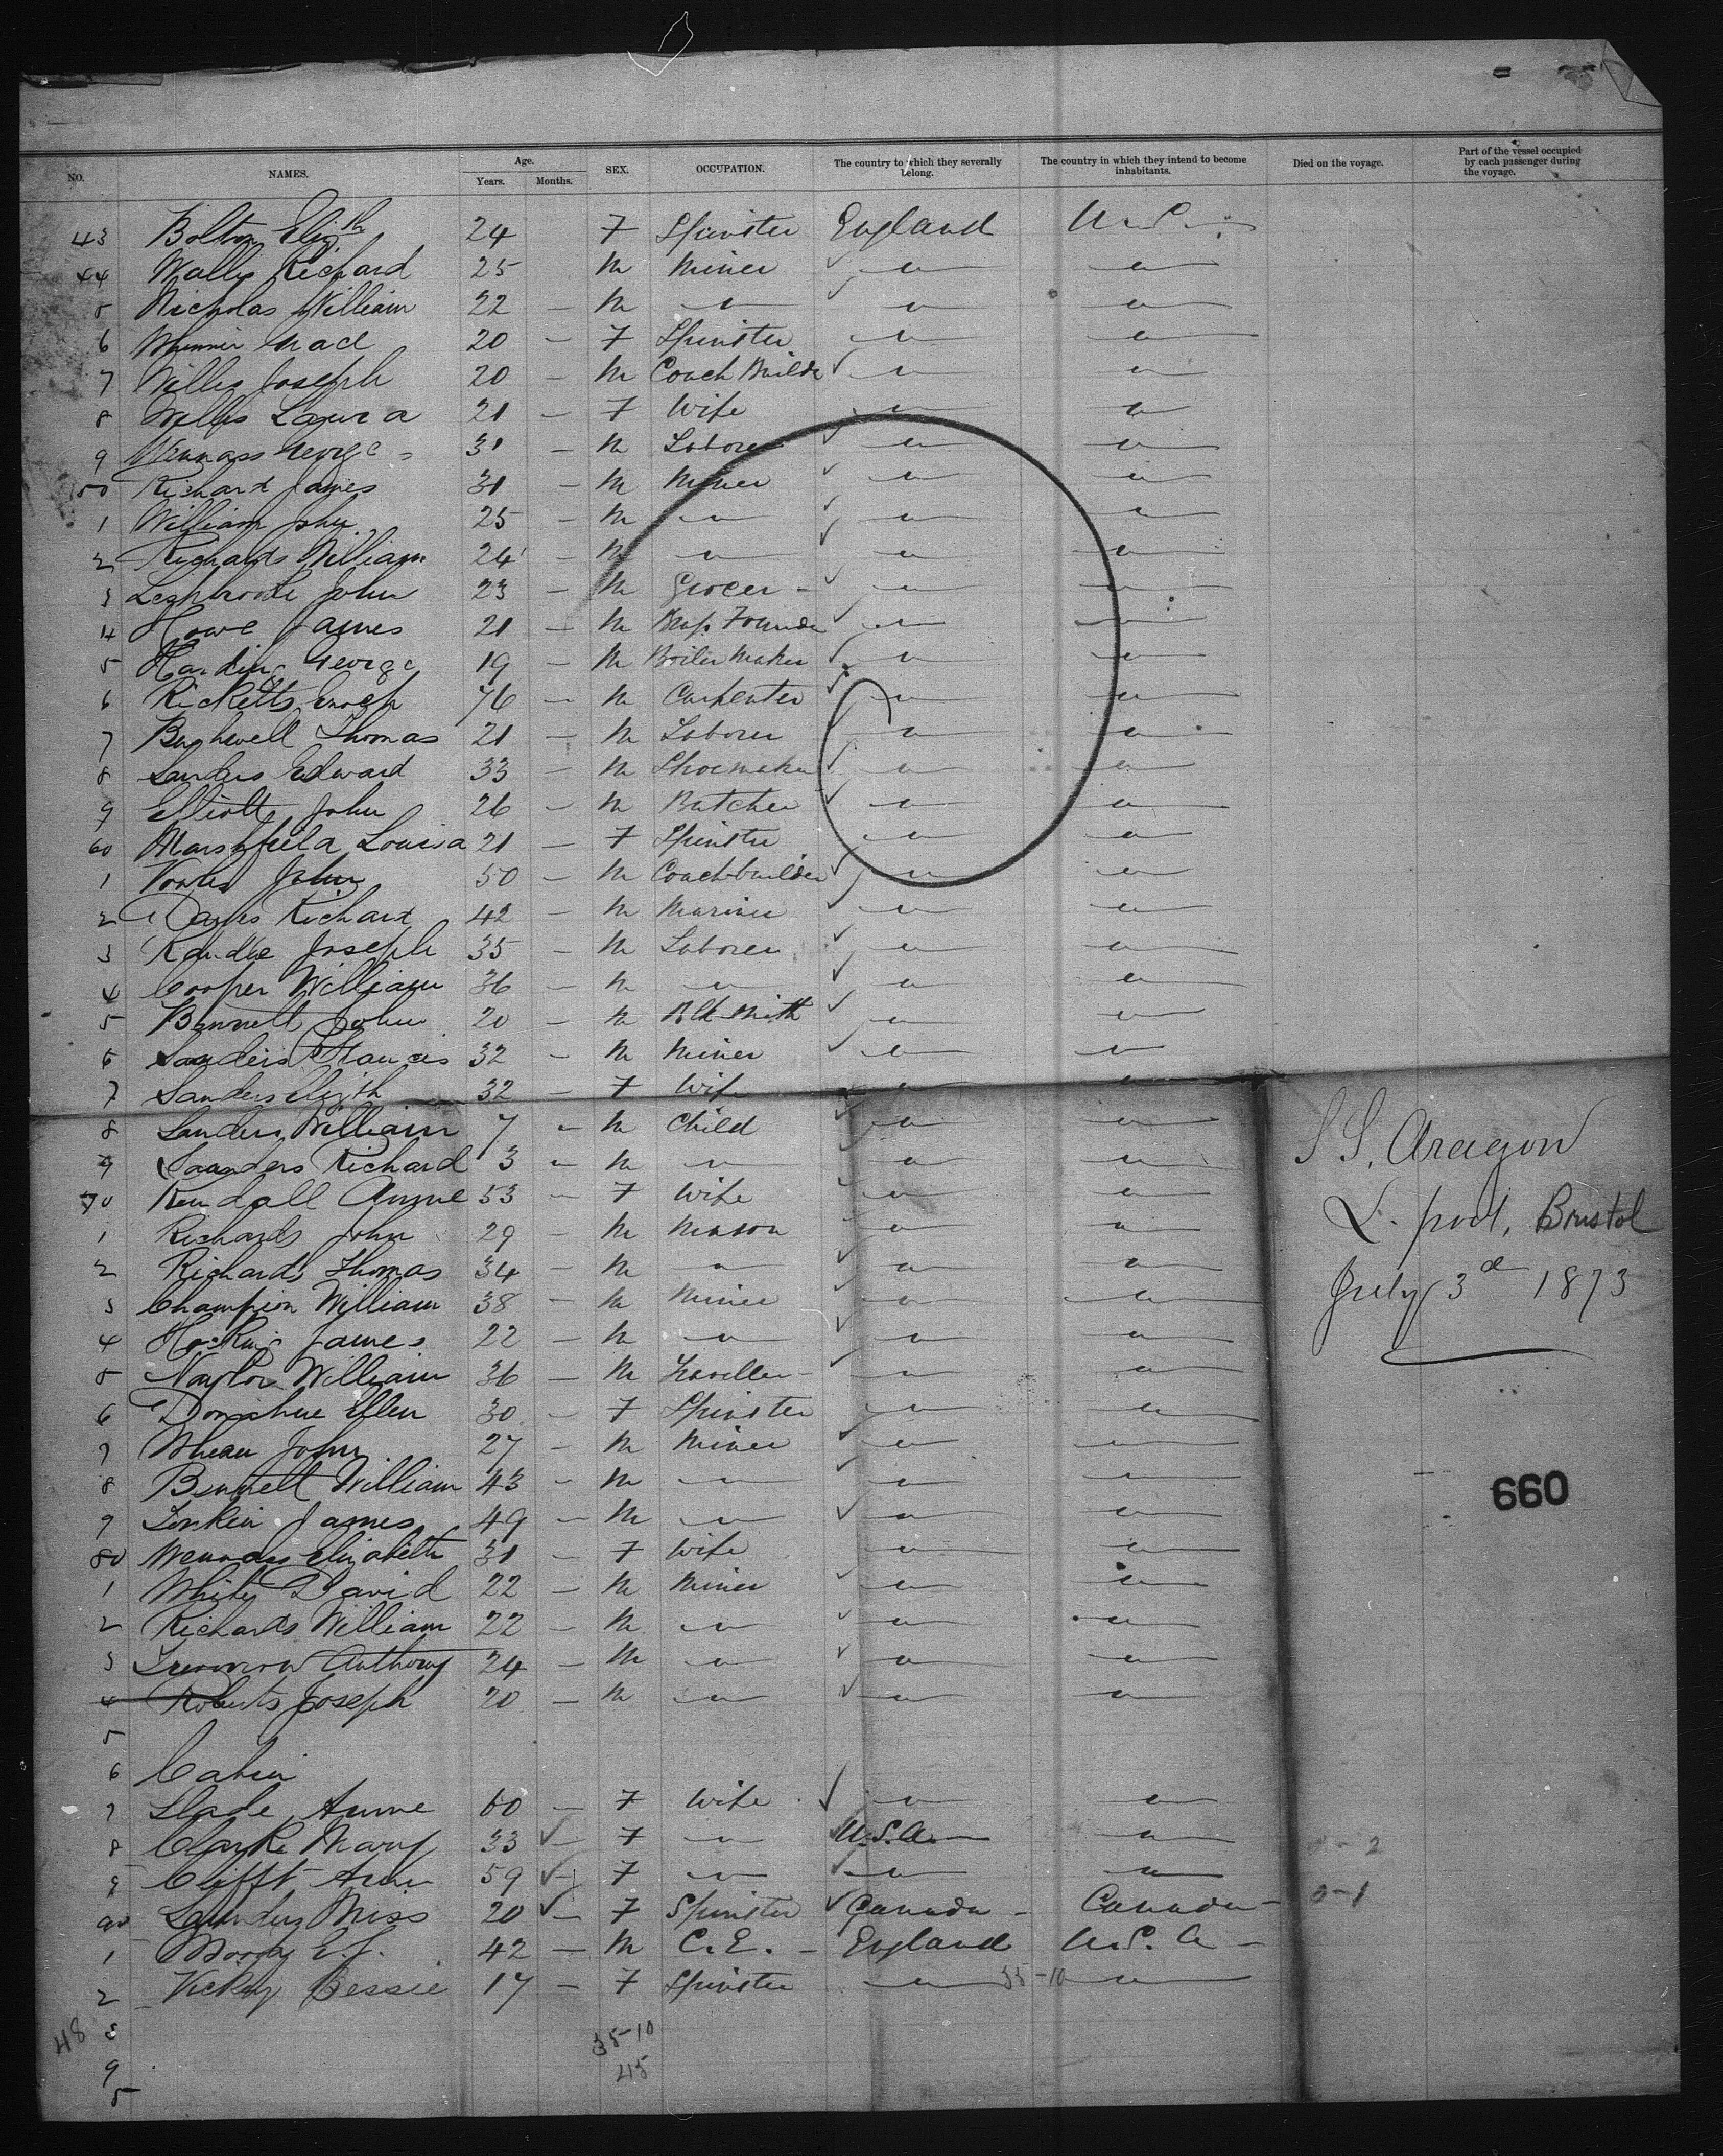 NO. NAMES. Age. Years. Months. SEX. OCCUPATION. The country to which they severally belong. The country in which they intend to become inhabitants. Died on the voyage. Part of the vessel occupied by each passenger during the voyage.
43 Bolton Elizth 24 F Spinster England U.S.
44 Wallis Richard 25 M Miner " "
5 Nicholas William 22 — M " " "
6 20 — F Spinster " "
7 Willis Joseph 20 — M Coach Builde " "
8 Willis Laura 21 — F Wife " "
9 George 31 — M Laborer " "
50 Richard James 31 — M Miner " "
1 William John 25 — M " " "
2 Richards William 24 — M " " "
3 John 23 — M Grocer " "
4 Howe James 21 — M Founder " "
5 Harding George 19 — M Boiler Maker " "
6 Ricketts Enoch 76 — M Carpenter " "
7 Bushwell Thomas 21 — M Laborer " "
8 Sanders Edward 33 — M Shoemaker " "
9 Elliott John 26 — M Butcher " "
60 Marshfield Louisa 21 — F Spinster " "
1 Vowles John 50 — M Coach-builder " "
2 Richard 42 — M Mariner " "
3 Randle Joseph 35 — M Laborer " "
4 Cooper William 36 — M " " "
5 Bennett John 20 — M Blk Smith " "
6 Sanders Francis 32 — M Miner " "
7 Sanders Elizth 32 — F Wife " "
8 Sanders William 7 — M Child " "
9 Saunders Richard 3 — M " " "
70 Kendall Anne 53 — F Wife " "
1 Richards John 29 — M Mason " "
2 Richards Thomas 34 — M " " "
3 Champion William 38 — M Miner " "
4 Hocking James 22 — M " " "
5 Naylor William 36 — M Traveller " "
6 Donohue Ellen 30 — F Spinster " "
7 John 27 — M Miner " "
8 Bennett William 43 — M " " "
9 James 49 — M " " "
80 Elizabeth 31 — F Wife " "
1 White David 22 — M Miner " "
2 Richards William 22 — M " " "
3 Anthony 24 — M " " "
4 Roberts Joseph 20 — M " " "
5
6 Cabin
7 Slade Anne 60 — F Wife " "
8 Clarke Mary 33 — F " U.S.A. " 2
9 Clifft Ann 59 — F " " "
90 Saunders Miss 20 — F Spinster Canada Canada 0-1
1 Moody E.J. 42 — M C.E. England U.S.A
2 Vickery Bessie 17 — F Spinster " 35-10 "
48 3 35-10
9 45
5
S S. Aragon
L. pool, Bristol
July 3d 1873
660